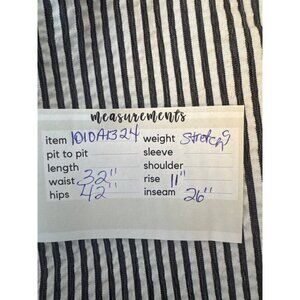 measurements
item 1010A1324 weight Stretchy
pit to pit sleeve
length shoulder
waist 32" rise 11"
hips 42" inseam 26"